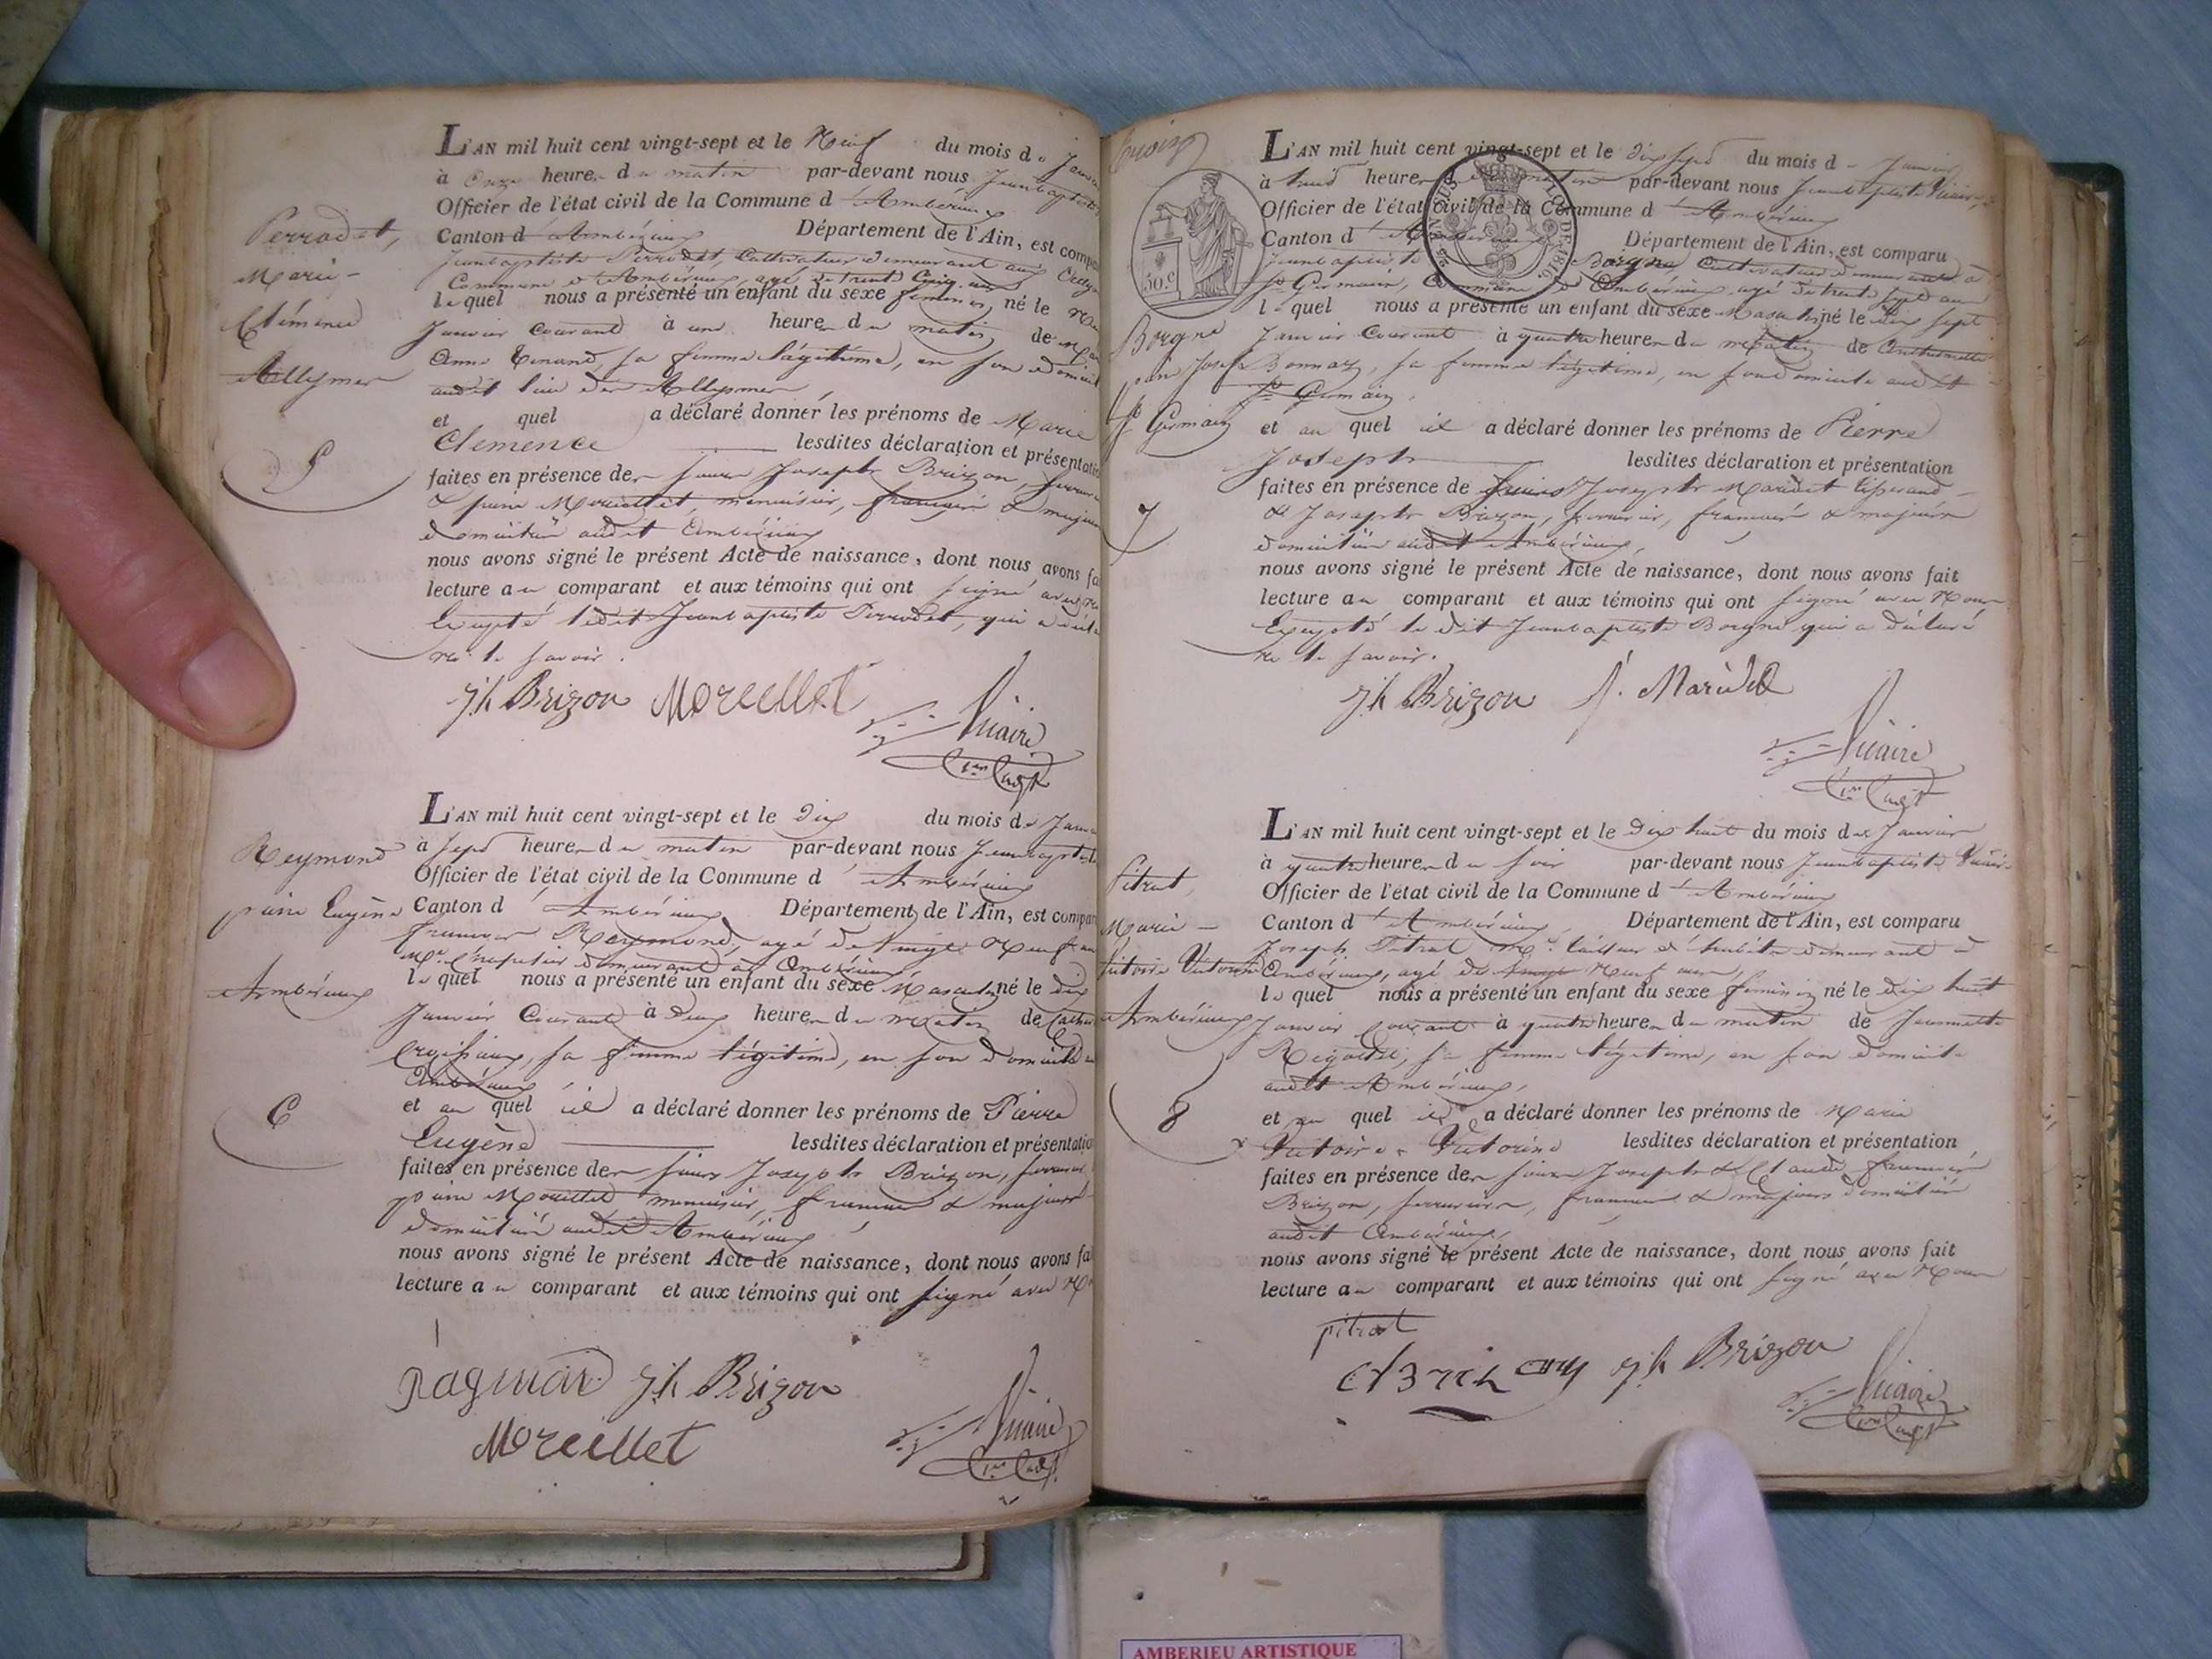 Perrodet,
Marie -
Clémence
Allymes
5
L'AN mil huit cent vingt-sept et le Neuf du mois de
à Onze heures du matin par-devant nous Jeanbaptiste
Officier de l'état civil de la Commune d'Ambérieux
Canton d'Ambérieux Département de l'Ain, est comp
Jeanbaptiste Perrodet, Cultivateur demeurant aux
Commune d'Ambérieux, agé de trente Cinq ans
lequel nous a présenté un enfant du sexe feminin, né le
Janvier Courant à une heure du matin de
Anne Tenand, sa femme légitime, en son domicile
audit lieu des Allymes,
et quel a déclaré donner les prénoms de Marie
Clemence lesdites déclaration et présentati
faites en présence des sieurs Joseph Brizon,
& pierre Morellet, menuisier, français & majeurs
domiciliés audit Ambérieux
nous avons signé le présent Acte de naissance, dont nous avons fa
lecture au comparant et aux témoins qui ont signé avec
Excepté ledit Jeanbaptiste Perrodet, qui a décla
ne le savoir.
Jh Brizon Morellet
Vicaire
Reymond
pierre Eugène
Ambérieux
6
L'AN mil huit cent vingt-sept et le dix du mois de
à sept heures du matin par-devant nous Jeanbaptiste
Officier de l'état civil de la Commune d'Ambérieux
Canton d'Ambérieux Département de l'Ain, est compar
Reymond, agé de vingt Neuf ans
demeurant à Ambérieux
lequel nous a présenté un enfant du sexe Masculin né le dix
Janvier Courant à deux heures du matin de
sa femme légitime, en son domicile
Ambérieux
et au quel il a déclaré donner les prénoms de Pierre
Eugène lesdites déclaration et présentatio
faites en présence des sieurs Joseph Brizon,
pierre Morellet menuisier, français & majeurs
domiciliés audit Ambérieux
nous avons signé le présent Acte de naissance, dont nous avons fa
lecture au comparant et aux témoins qui ont signé avec
Jh Brizon
Morellet
Vicaire
50.c
LOI DE 1816.
Borgne
pierre Joseph
St Germain
7
L'AN mil huit cent vingt-sept et le dix sept du mois d - Janvier
à heures du matin par-devant nous Jeanbaptiste Vicaire,
Officier de l'état civil de la Commune d'Ambérieux
Canton d'Ambérieux Département de l'Ain, est comparu
Jeanbaptiste Borgne, Cultivateur demeurant à
St Germain, Commune d'Ambérieux agé de trente sept ans
lequel nous a présenté un enfant du sexe Masculin né le dix sept
Janvier Courant à quatre heures du matin de Anthelmette
Bonnaz, sa femme légitime, en son domicile audit
St Germain,
et au quel il a déclaré donner les prénoms de Pierre
Joseph lesdites déclaration et présentation
faites en présence de Sieurs Joseph Maridet
& Joseph Brizon, serrurier, français & majeurs
domiciliés audit Ambérieux,
nous avons signé le présent Acte de naissance, dont nous avons fait
lecture au comparant et aux témoins qui ont signé avec Nous
Excepté le dit Jeanbaptiste Borgne qui a déclaré
ne le savoir.
Jh Brizon J. Maridet
Vicaire
Pitrat,
Marie -
Victoire Victorine
Ambérieux
8
L'AN mil huit cent vingt-sept et le dix huit du mois de Janvier
à quatre heures du soir par-devant nous Jeanbaptiste Vicaire
Officier de l'état civil de la Commune d'Ambérieux
Canton d'Ambérieux Département de l'Ain, est comparu
Joseph Pitrat Me tailleur d'habits demeurant à
Ambérieux, agé de vingt Neuf ans,
lequel nous a présenté un enfant du sexe feminin né le dix huit
Janvier Courant à quatre heures du matin de Jeannette
sa femme légitime, en son domicile
audit Ambérieux,
et au quel il a déclaré donner les prénoms de Marie
Victoire Victorine lesdites déclaration et présentation
faites en présence des sieurs Joseph & Claude
Brizon, serruriers, français & majeurs domiciliés
audit Ambérieux,
nous avons signé le présent Acte de naissance, dont nous avons fait
lecture au comparant et aux témoins qui ont signé avec Nous
pitrat
Jh Brizon
Vicaire
AMBERIEU ARTISTIQUE